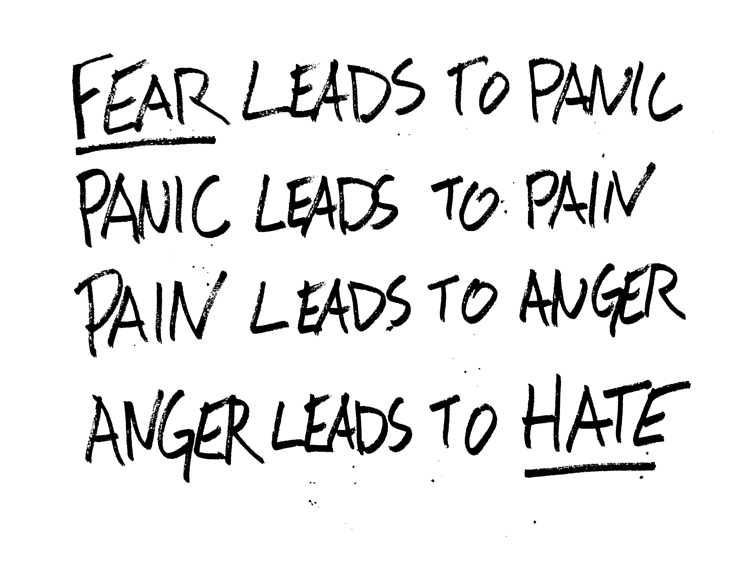 FEAR LEADS TO PANIC
PANIC LEADS TO PAIN
PAIN LEADS TO ANGER
ANGER LEADS TO HATE